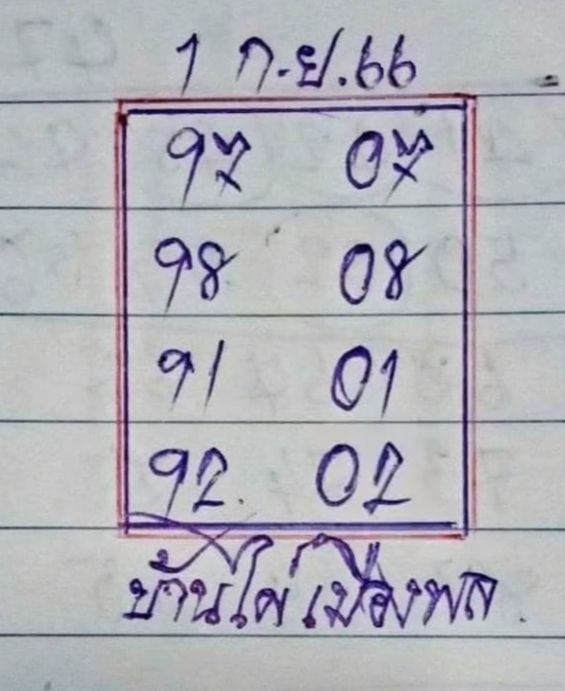 1 ก.ย.66
97 07
98 08
91 01
92. 02
บ้านไผ่ เมืองพล.